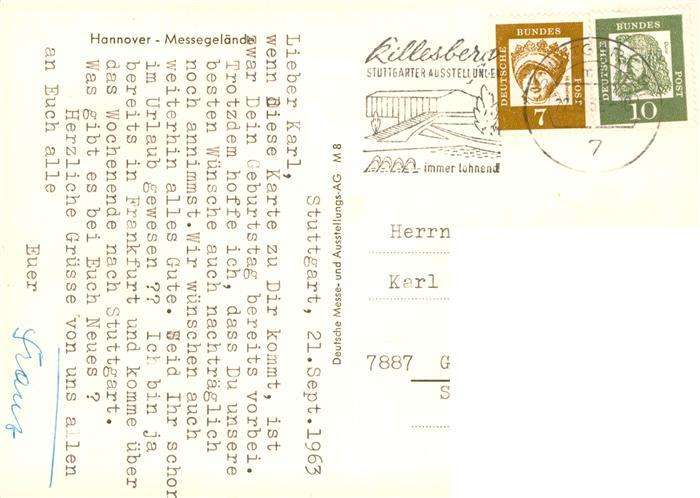 Hannover - Messegelände
Stuttgart, 21.Sept.1963
Lieber Karl,
wenn diese Karte zu Dir kommt, ist
zwar Dein Geburtstag bereits vorbei.
Trotzdem hoffe ich, dass Du unsere
besten Wünsche auch nachträglich
noch annimmst.Wir wünschen auch
weiterhin alles Gute. Seid Ihr schon
im Urlaub gewesen ?? Ich bin ja
bereits in Frankfurt und komme über
das Wochenende nach Stuttgart.
Was gibt es bei Euch Neues ?
Herzliche Grüsse von uns allen
an Euch alle
Euer
Franz
Deutsche Messe- und Ausstellungs-AG · M 8
Killesberg
STUTTGARTER AUSSTELLUNG
immer lohnend
DEUTSCHE
BUNDES
POST
7
DEUTSCHE
BUNDES
POST
10
7
Herrn
Karl
7887 G
S